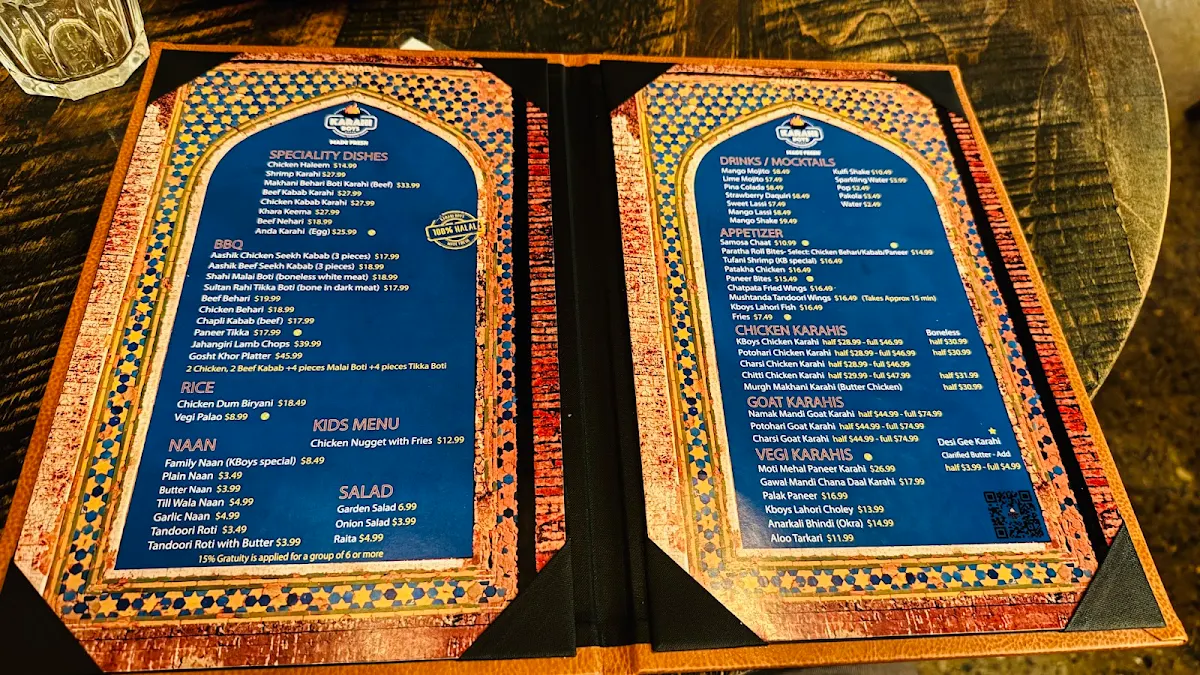 KARAHI
BOYS
MADE FRESH
SPECIALITY DISHES
Chicken Haleem $14.99
Shrimp Karahi $27.99
Makhani Behari Boti Karahi (Beef) $33.99
Beef Kabab Karahi $27.99
Chicken Kabab Karahi $27.99
Khara Keema $27.99
Beef Nehari $18.99
Anda Karahi (Egg) $25.99
KARAHI BOYS
100% HALAL
MADE FRESH
BBQ
Aashik Chicken Seekh Kabab (3 pieces) $17.99
Aashik Beef Seekh Kabab (3 pieces) $18.99
Shahi Malai Boti (boneless white meat) $18.99
Sultan Rahi Tikka Boti (bone in dark meat) $17.99
Beef Behari $19.99
Chicken Behari $18.99
Chapli Kabab (beef) $17.99
Paneer Tikka $17.99
Jahangiri Lamb Chops $39.99
Gosht Khor Platter $45.99
2 Chicken, 2 Beef Kabab +4 pieces Malai Boti +4 pieces Tikka Boti
RICE
Chicken Dum Biryani $18.49
Vegi Palao $8.99
KIDS MENU
Chicken Nugget with Fries $12.99
NAAN
Family Naan (KBoys special) $8.49
Plain Naan $3.49
Butter Naan $3.99
Till Wala Naan $4.99
Garlic Naan $4.99
Tandoori Roti $3.49
Tandoori Roti with Butter $3.99
SALAD
Garden Salad 6.99
Onion Salad $3.99
Raita $4.99
15% Gratuity is applied for a group of 6 or more
KARAHI
BOYS
MADE FRESH
DRINKS / MOCKTAILS
Mango Mojito $8.49
Lime Mojito $7.49
Pina Colada $8.49
Strawberry Daquiri $8.49
Sweet Lassi $7.49
Mango Lassi $8.49
Mango Shake $9.49
Kulfi Shake $10.49
Sparkling Water $3.99
Pop $2.49
Pakola $3.49
Water $2.49
APPETIZER
Samosa Chaat $10.99
Paratha Roll Bites- Select: Chicken Behari/Kabab/Paneer $14.99
Tufani Shrimp (KB special) $16.49
Patakha Chicken $16.49
Paneer Bites $15.49
Chatpata Fried Wings $16.49
Mushtanda Tandoori Wings $16.49 (Takes Approx 15 min)
Kboys Lahori Fish $16.49
Fries $7.49
CHICKEN KARAHIS
Boneless
KBoys Chicken Karahi half $28.99 - full $46.99 half $30.99
Potohari Chicken Karahi half $28.99 - full $46.99 half $30.99
Charsi Chicken Karahi half $28.99 - full $46.99
Chitti Chicken Karahi half $29.99 - full $47.99 half $31.99
Murgh Makhani Karahi (Butter Chicken) half $30.99
GOAT KARAHIS
Namak Mandi Goat Karahi half $44.99 - full $74.99
Potohari Goat Karahi half $44.99 - full $74.99
Charsi Goat Karahi half $44.99 - full $74.99
Desi Gee Karahi
Clarified Butter - Add
half $3.99 - full $4.99
VEGI KARAHIS
Moti Mehal Paneer Karahi $26.99
Gawal Mandi Chana Daal Karahi $17.99
Palak Paneer $16.99
Kboys Lahori Choley $13.99
Anarkali Bhindi (Okra) $14.99
Aloo Tarkari $11.99